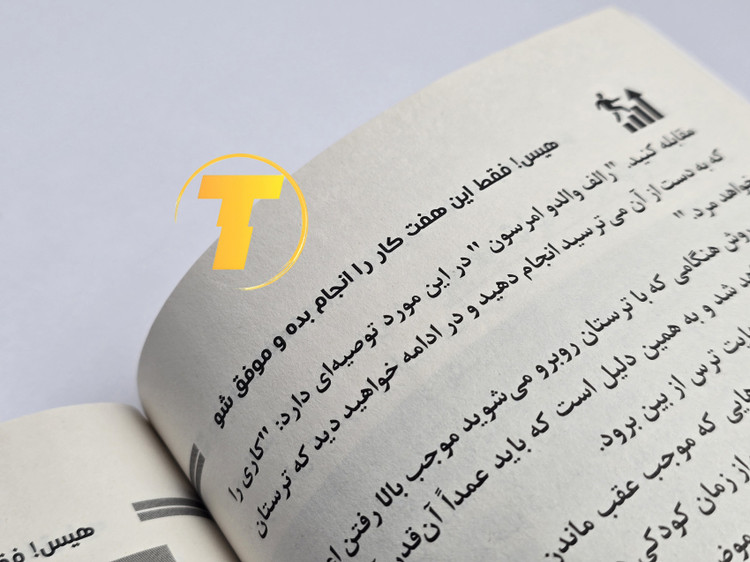 هیس! فقط این هفت کار را انجام بده و موفق شو
مقابله کنید. "رالف والدو امرسون" در این مورد توصیه‌ای دارد: "کاری را
که به دست از آن می‌ترسید انجام دهید و در ادامه خواهید دید که ترستان
خواهد مرد."
روش هنگامی که با ترستان روبرو می‌شوید موجب بالا رفتن
شد و به همین دلیل است که باید عمداً آن‌قدر
ترس از بین برود.
که موجب عقب ماندن
از زمان کودکی
هیس!
T